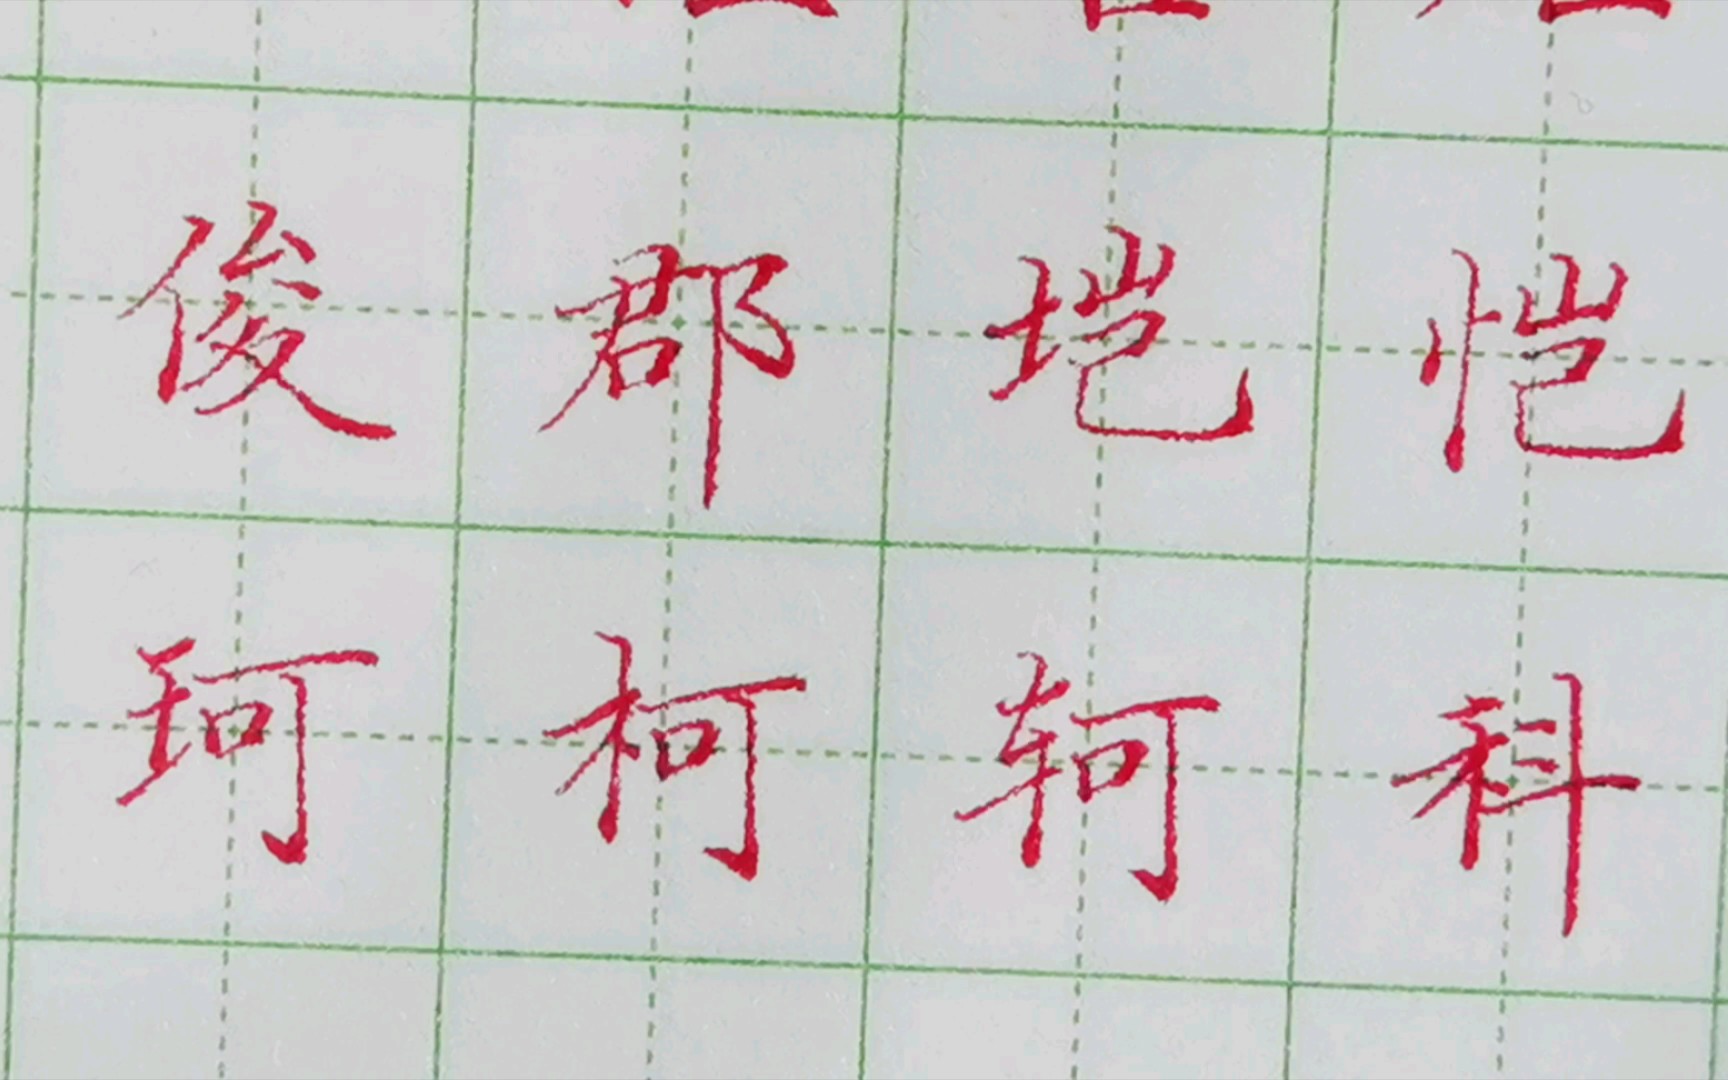 俊郡垲恺
珂柯轲科